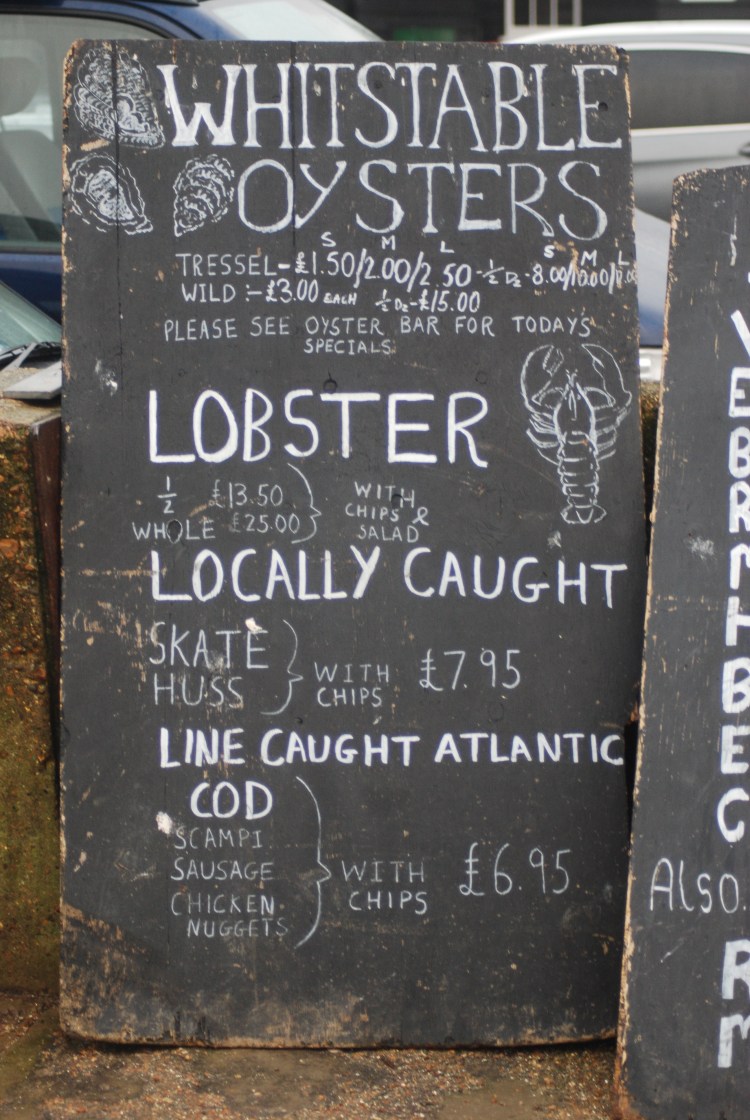 WHITSTABLE
OYSTERS
S M L S M L
TRESSEL-£1.50/2.00/2.50-½Dz-8.00/10.00/
WILD :-£3.00 EACH ½Dz-£15.00
PLEASE SEE OYSTER BAR FOR TODAYS
SPECIALS
LOBSTER
½ £13.50
WHOLE £25.00
WITH
CHIPS &
SALAD
LOCALLY CAUGHT
SKATE
HUSS
WITH
CHIPS
£7.95
LINE CAUGHT ATLANTIC
COD
SCAMPI
SAUSAGE
CHICKEN
NUGGETS
WITH
CHIPS
£6.95
Also